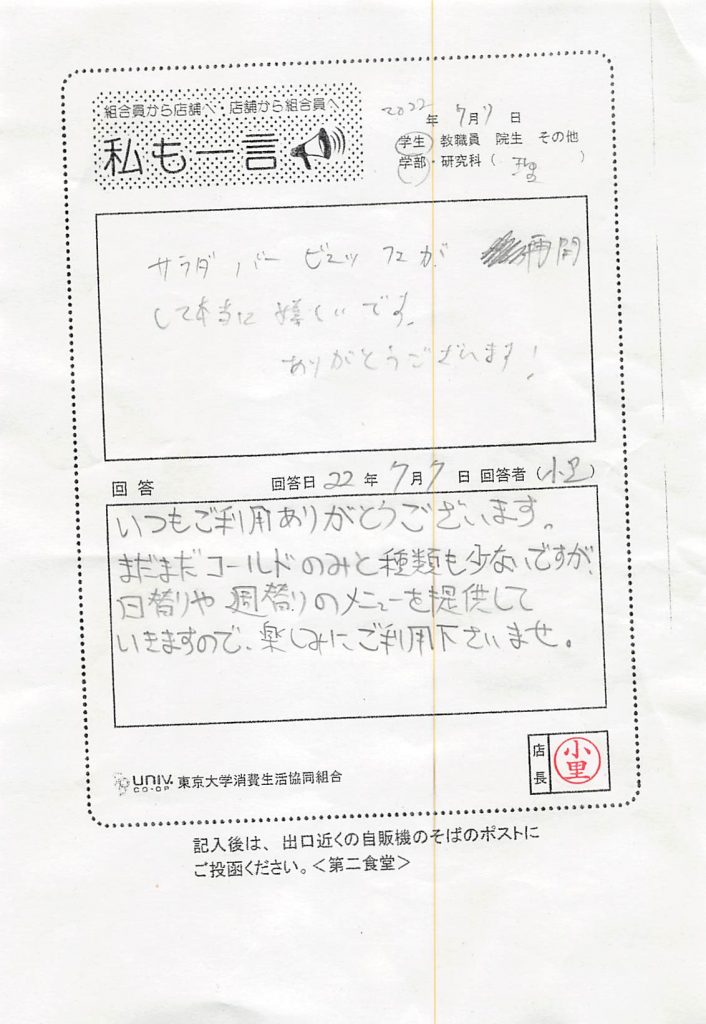 組合員から店舗へ・店舗から組合員へ
私も一言
2022 年 7月 7 日
学生 教職員 院生 その他
学部・研究科( 理 )
サラダ バー ビュッフェが 再開
して本当に 嬉しいです。
ありがとうございます!
回答 回答日 22 年 7月 7 日 回答者(小里)
いつもご利用ありがとうございます。
まだまだコールドのみと種類も少ないですが、
日替りや週替りのメニューを提供して
いきますので、楽しみにご利用下さいませ。
店長 小里
UNIV. CO-OP 東京大学消費生活協同組合
記入後は、出口近くの自販機のそばのポストに
ご投函ください。<第二食堂>